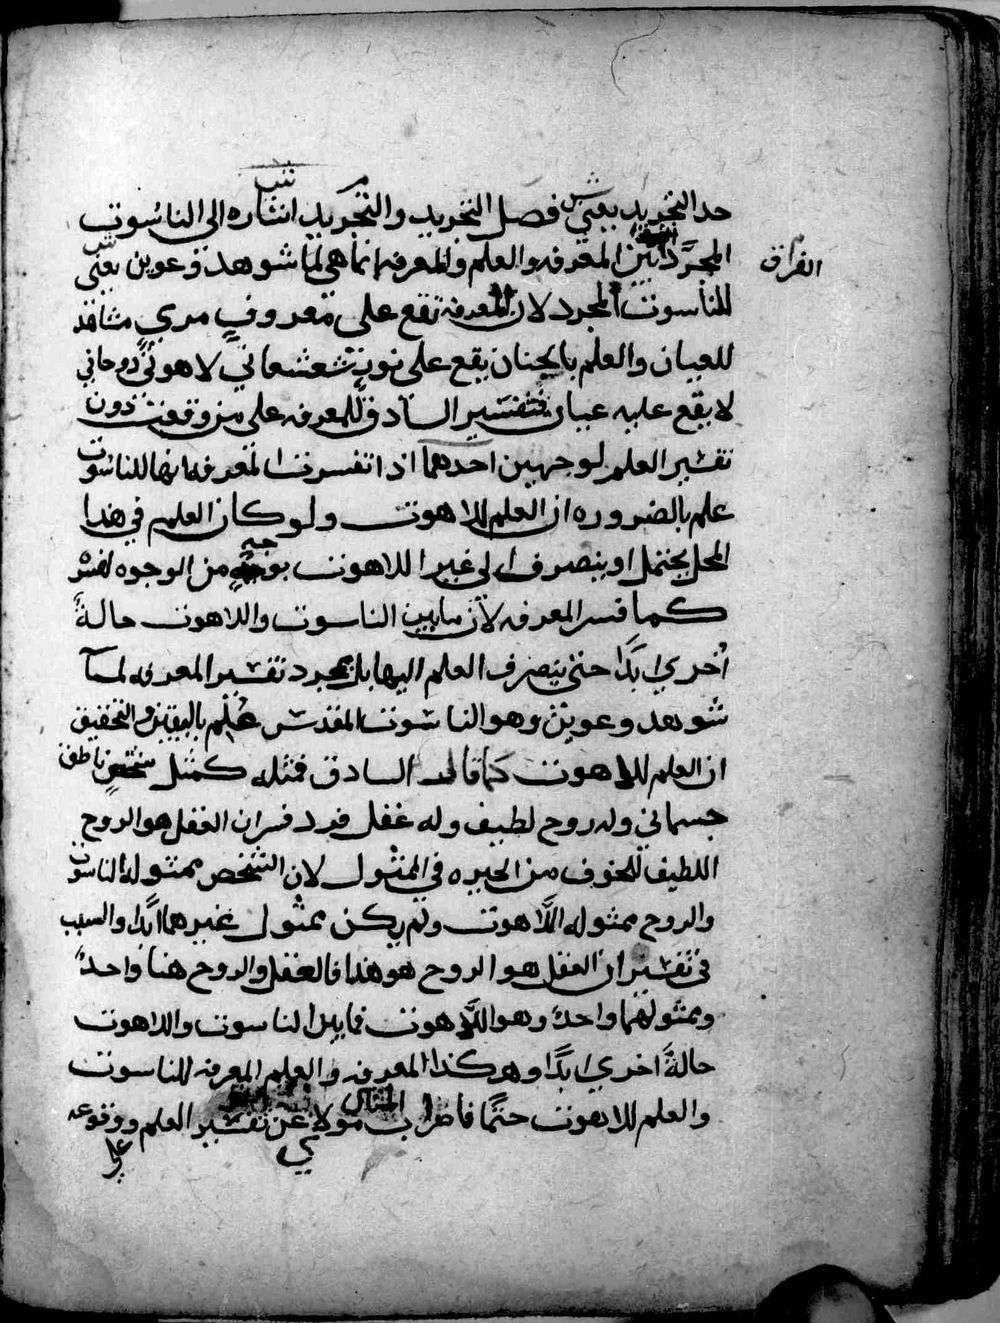 حد التجريد يعني فصل التجريد والتجريد اشاره الى الناسوت
المجرد بين المعرفه والعلم والمعرفه انما هي لما شوهد وعوين يعني
الفراق
للناسوت المجرد لان المعرفه تقع على معروف مري مشاهد
للعيان والعلم بالجنان يقع على نور شعشعاني لاهوتي روحاني
لا يقع عليه عيان فتفسير السادق للمعرفه على من وقعت دون
تفسير العلم لوجهين احدهما اذا تفسرت المعرفه انها للناسوت
علم بالضروره ان العلم لللاهوت ولو كان العلم في هذا
المحل يحتمل او ينصرف الى غير اللاهوت بوجه من الوجوه لفسره
كما فسر المعرفه لان ما بين الناسوت واللاهوت حالة
اخري ابدًا حتى ينصرف العلم اليها بل بمجرد تفسير المعرفه لما
شوهد وعوين وهو الناسوت المقدس علم باليقين والتحقيق
ان العلم لللاهوت كما قال السادق فمثله كمثل شخص ناطق
جسماني وله روح لطيف وله عقل فرد فسر ان العقل هو الروح
اللطيف للخوف من الحيره في المثول لان الشخص ممثوله الناسوت
والروح ممثوله اللاهوت ولم يكن ممثول غيرهما ابدًا والسبب
في تفسير ان العقل هو الروح هو هذا فالعقل والروح هنا واحد
وممثولهما واحد وهو اللاهوت فما بين الناسوت واللاهوت
حالةً اخري ابدًا وهكذا المعرفه والعلم المعرفه للناسوت
والعلم لللاهوت حتمًا فاضراب المثال مولاي عن تفسير العلم ووقوعه
على